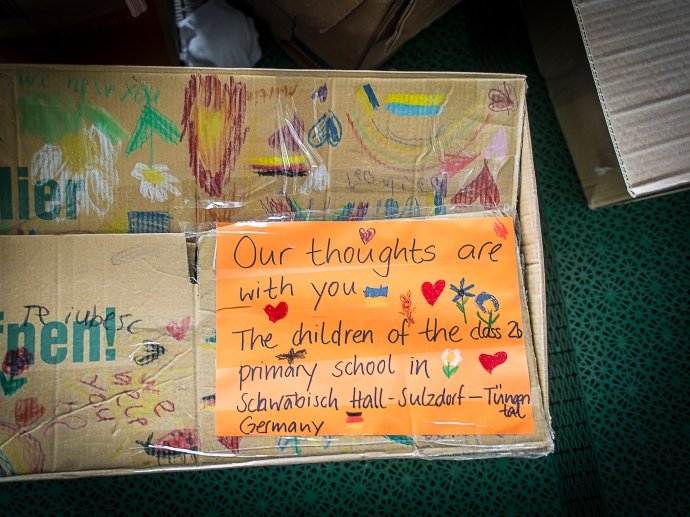 we hope you
lier
Our thoughts are
with you
The children of the class 2b
primary school in
Schwäbisch Hall-Sulzdorf-Tüngen
tal
Germany
Te iubesc
fnen!